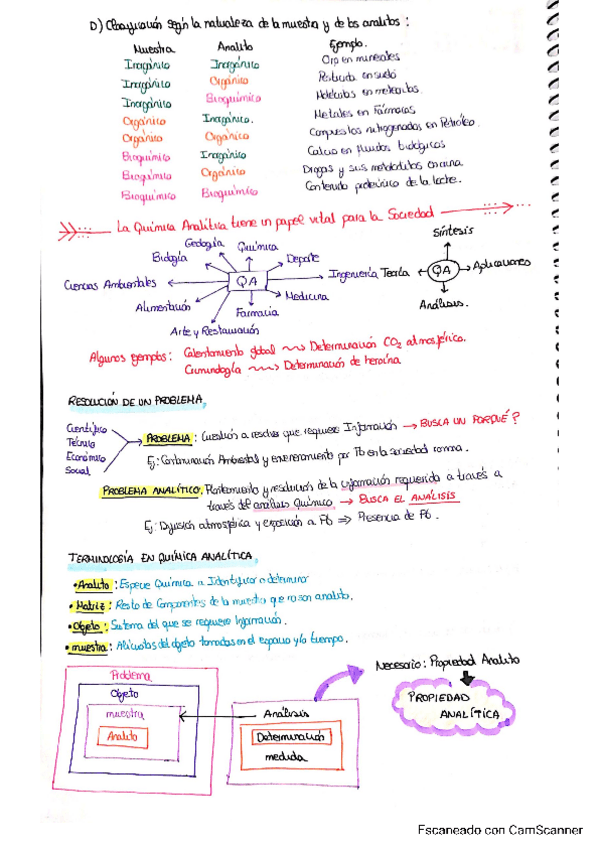 D) Clasificación según la naturaleza de la muestra y de los analitos:
Muestra Analito Ejemplo.
Inorgánico Inorgánico Oro en minerales
Inorgánico Orgánico Pesticida en suelo
Inorgánico Bioquímico Moléculas en meteoritos
Orgánico Inorgánico. Metales en Fármacos
Orgánico Orgánico Compuestos nitrogenados en Petróleo.
Bioquímico Inorgánico Calcio en fluidos biológicos
Bioquímico Orgánico Drogas y sus metabolitos en orina.
Bioquímico Bioquímico Contenido proteínico de la leche.
La Química Analítica tiene un papel vital para la Sociedad
Geología Química
Biología Deporte
Ciencias Ambientales QA Ingeniería
Alimentación Medicina
Farmacia
Arte y Restauración
Síntesis
Teoría QA Aplicaciones
Análisis.
Algunos ejemplos: Calentamiento global Determinación CO2 atmosférica.
Criminología Determinación de heroína.
RESOLUCIÓN DE UN PROBLEMA
Científico
Técnico
Económico
Social
PROBLEMA: Cuestión a resolver que requiere Información → BUSCA UN PORQUÉ?
Ej: Contaminación Ambiental y envenenamiento por Pb en la sociedad romana.
PROBLEMA ANALÍTICO: Planteamiento y resolución de la información requerida a través a
través del análisis Químico → BUSCA EL ANÁLISIS
Ej: Difusión atmosférica y exposición a Pb ⇒ Presencia de Pb.
TERMINOLOGÍA EN QUÍMICA ANALÍTICA
• Analito: Especie Química a Identificar o determinar
• Matriz: Resto de Componentes de la muestra que no son analito.
• Objeto: Sistema del que se requiere Información.
• muestra: Alícuotas del objeto tomadas en el espacio y/o tiempo.
Problema
Objeto
muestra
Analito
Análisis
Determinación
medida
Necesario: Propiedad Analito
PROPIEDAD
ANALÍTICA
Escaneado con CamScanner